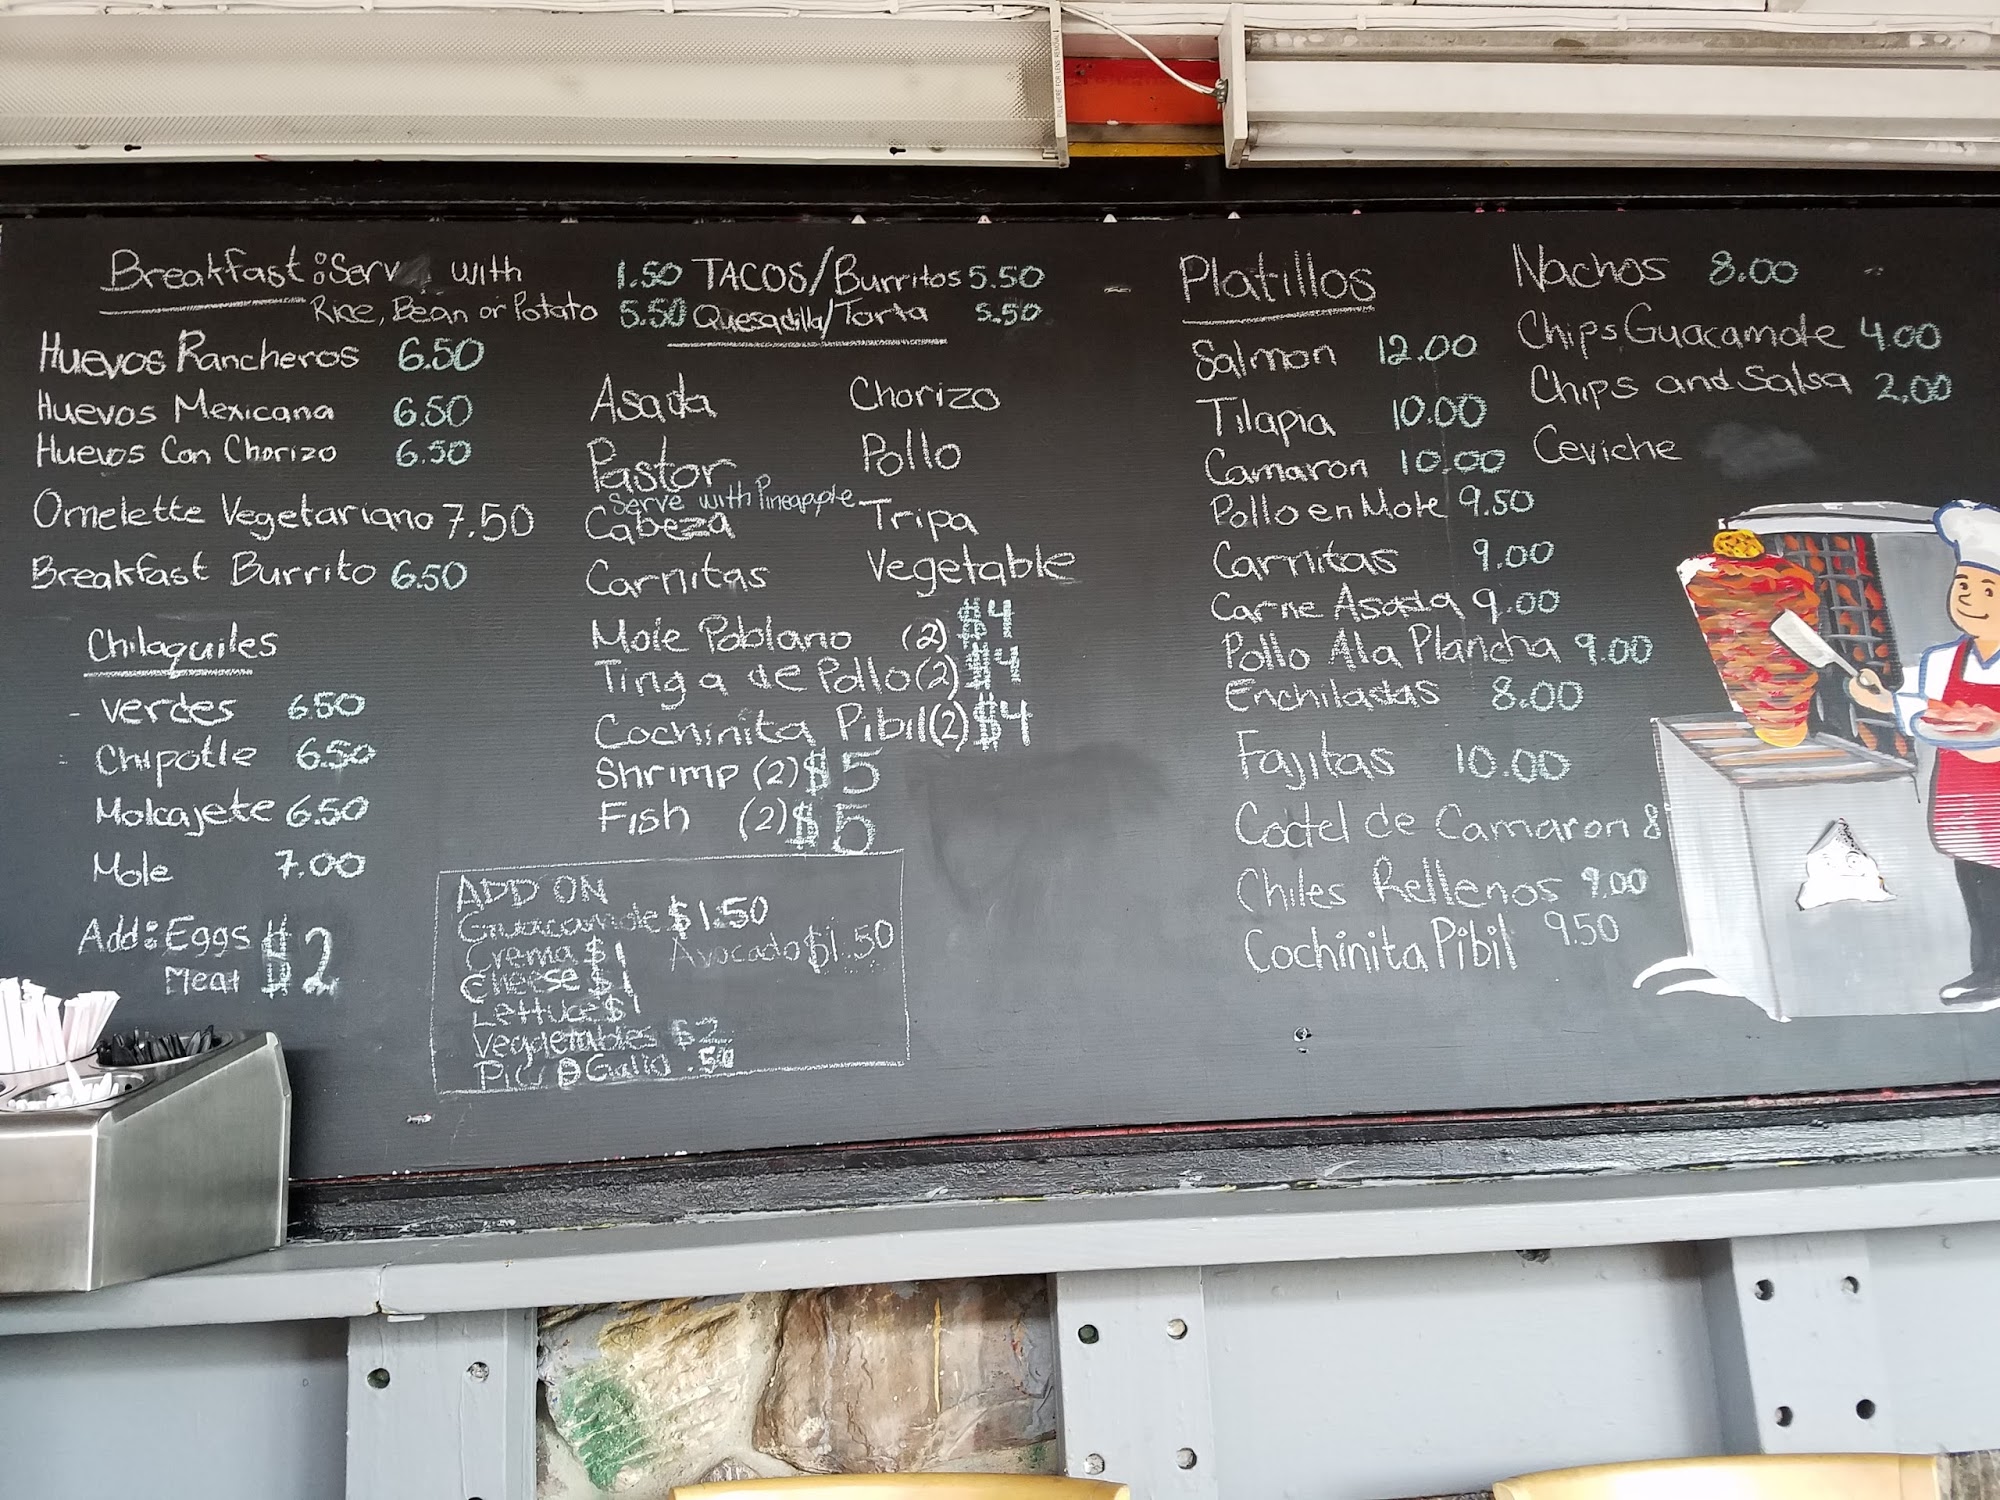 PULL HERE FOR LENS REMOVAL
Breakfast: Serv with
Rice, Bean or Potato
Huevos Rancheros 6.50
Huevos Mexicana 6.50
Huevos Con Chorizo 6.50
Omelette Vegetariano 7.50
Breakfast Burrito 6.50
Chilaquiles
- verdes 6.50
- Chipotle 6.50
Molcajete 6.50
Mole 7.00
Add: Eggs $2
Meat
1.50 TACOS/Burritos 5.50
5.50 Quesadilla/Torta 5.50
Asada Chorizo
Pastor Pollo
Serve with Pineapple
Cabeza Tripa
Carnitas Vegetable
Mole Poblano (2) $4
Tinga de Pollo (2) $4
Cochinita Pibil (2) $4
Shrimp (2) $5
Fish (2) $5
ADD ON
Guacamole $1.50
Crema $1 Avocado $1.50
Cheese $1
Lettuce $1
Veggetables $2
Pic D Gallo .50
Platillos
Salmon 12.00
Tilapia 10.00
Camaron 10.00
Pollo en Mole 9.50
Carnitas 9.00
Carne Asada 9.00
Pollo Ala Plancha 9.00
Enchiladas 8.00
Fajitas 10.00
Coctel de Camaron 8
Chiles Rellenos 9.00
Cochinita Pibil 9.50
Nachos 8.00
Chips Guacamole 4.00
Chips and Salsa 2.00
Ceviche